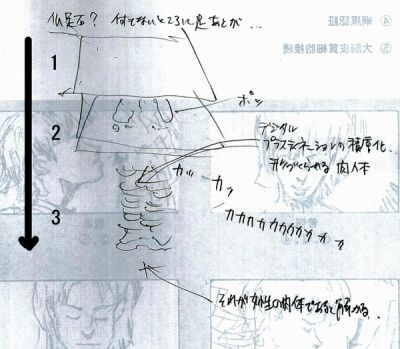 仏足石? 何もないところに足あとが…
④ 網膜認証
⑤ 大脳皮質細胞接続
1
ポッ
2
デジタル
プラスティネーションの積層化.
形づくられる 肉体
カッ—カッ
3
カカカカカカカカカカ
それが女性の肉体であると解かる.